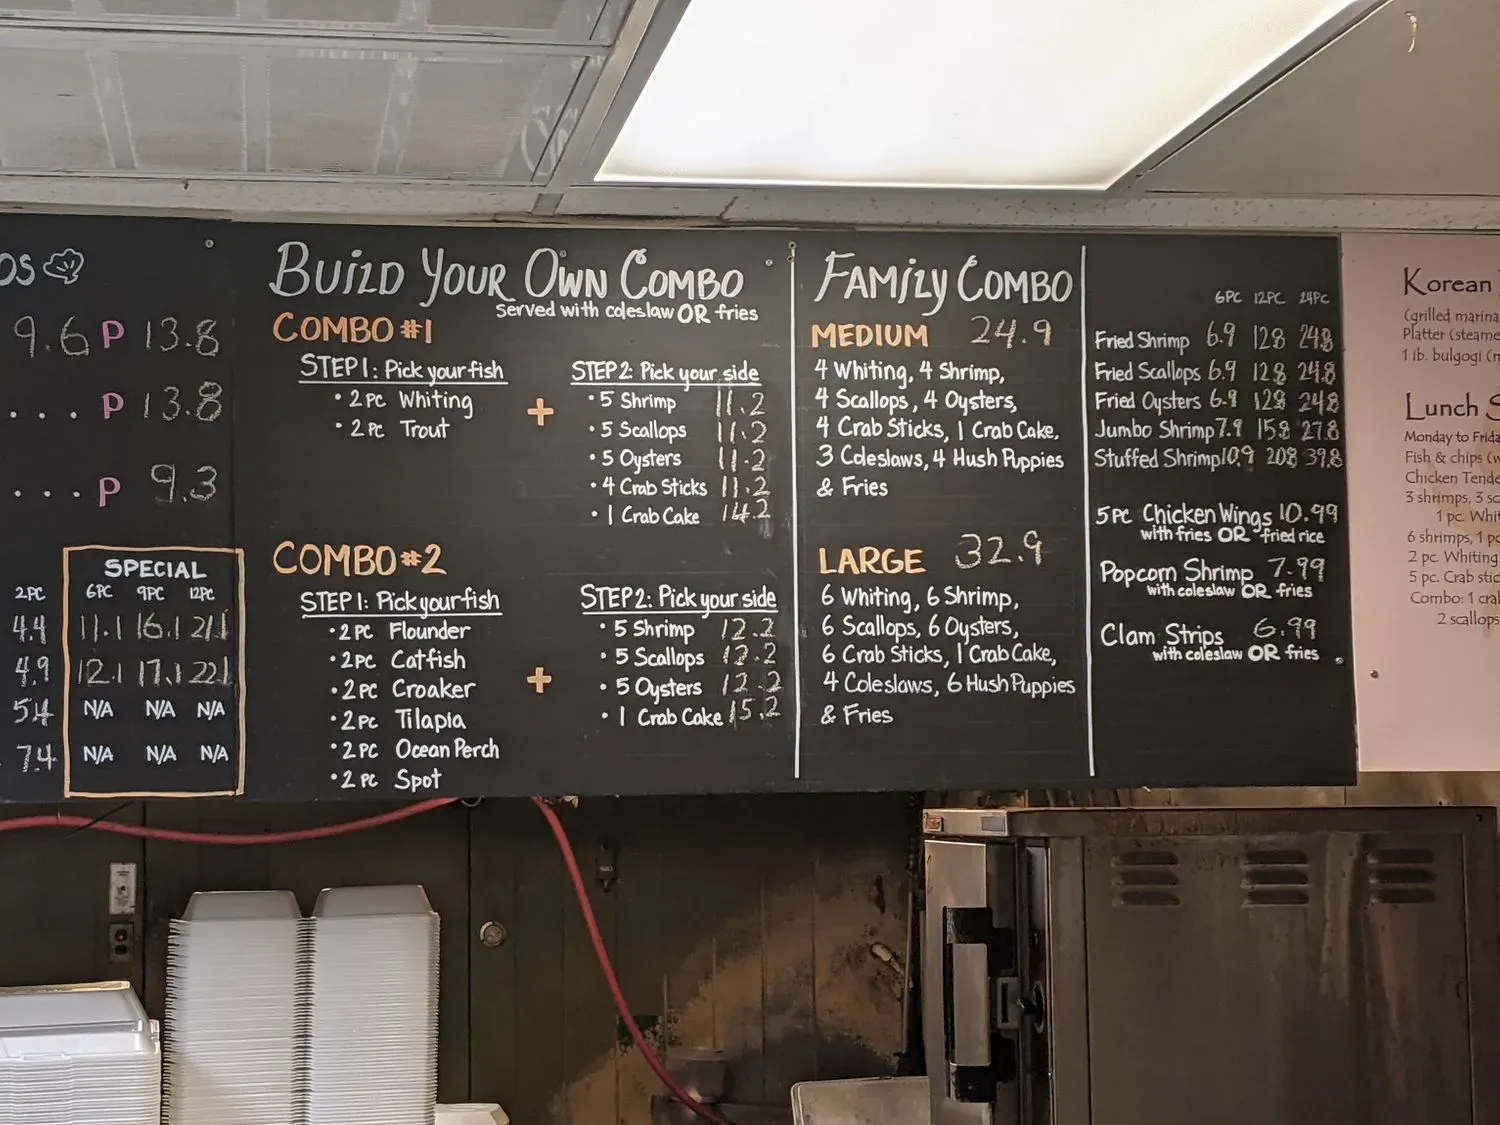 OS
9.6 P 13.8
... P 13.8
... P 9.3
SPECIAL
2PC 6PC 9PC 12PC
4.4 11.1 16.1 21.1
4.9 12.1 17.1 22.1
5.4 N/A N/A N/A
7.4 N/A N/A N/A
BUILD YOUR OWN COMBO
served with coleslaw OR fries
COMBO #1
STEP 1: Pick your fish
• 2 PC Whiting
• 2 PC Trout
+
STEP 2: Pick your side
• 5 Shrimp 11.2
• 5 Scallops 11.2
• 5 Oysters 11.2
• 4 Crab Sticks 11.2
• 1 Crab Cake 14.2
COMBO #2
STEP 1: Pick your fish
• 2 PC Flounder
• 2 PC Catfish
• 2 PC Croaker
• 2 PC Tilapia
• 2 PC Ocean Perch
• 2 PC Spot
+
STEP 2: Pick your side
• 5 Shrimp 12.2
• 5 Scallops 12.2
• 5 Oysters 12.2
• 1 Crab Cake 15.2
FAMILY COMBO
MEDIUM 24.9
4 Whiting, 4 Shrimp,
4 Scallops, 4 Oysters,
4 Crab Sticks, 1 Crab Cake,
3 Coleslaws, 4 Hush Puppies
& Fries
LARGE 32.9
6 Whiting, 6 Shrimp,
6 Scallops, 6 Oysters,
6 Crab Sticks, 1 Crab Cake,
4 Coleslaws, 6 Hush Puppies
& Fries
6PC 12PC 24PC
Fried Shrimp 6.9 12.8 24.8
Fried Scallops 6.9 12.8 24.8
Fried Oysters 6.9 12.8 24.8
Jumbo Shrimp 7.9 15.8 27.8
Stuffed Shrimp 10.9 20.8 39.8
5 PC Chicken Wings 10.99
with fries OR fried rice
Popcorn Shrimp 7.99
with coleslaw OR fries
Clam Strips 6.99
with coleslaw OR fries
Korean
(grilled marina
Platter (steame
1 lb. bulgogi
Lunch S
Monday to Frida
Fish & chips (w
Chicken Tende
3 shrimps, 3 sc
1 pc. Whit
6 shrimps, 1 pc
2 pc. Whiting
5 pc. Crab stic
Combo: 1 crab
2 scallops